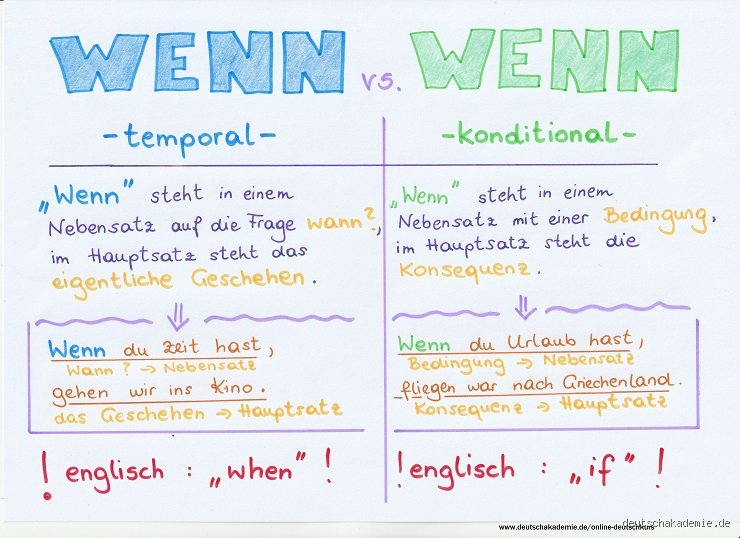 WENN vs. WENN
-temporal-
„Wenn" steht in einem
Nebensatz auf die Frage wann?,
im Hauptsatz steht das
eigentliche Geschehen.
Wenn du Zeit hast,
Wann? → Nebensatz
gehen wir ins Kino.
das Geschehen → Hauptsatz
! englisch : „when" !
-konditional-
„Wenn" steht in einem
Nebensatz mit einer Bedingung,
im Hauptsatz steht die
Konsequenz.
Wenn du Urlaub hast,
Bedingung → Nebensatz
fliegen war nach Griechenland.
Konsequenz → Hauptsatz
! englisch : „if" !
www.deutschakademie.de/online-deutschkurs
deutschakademie.de